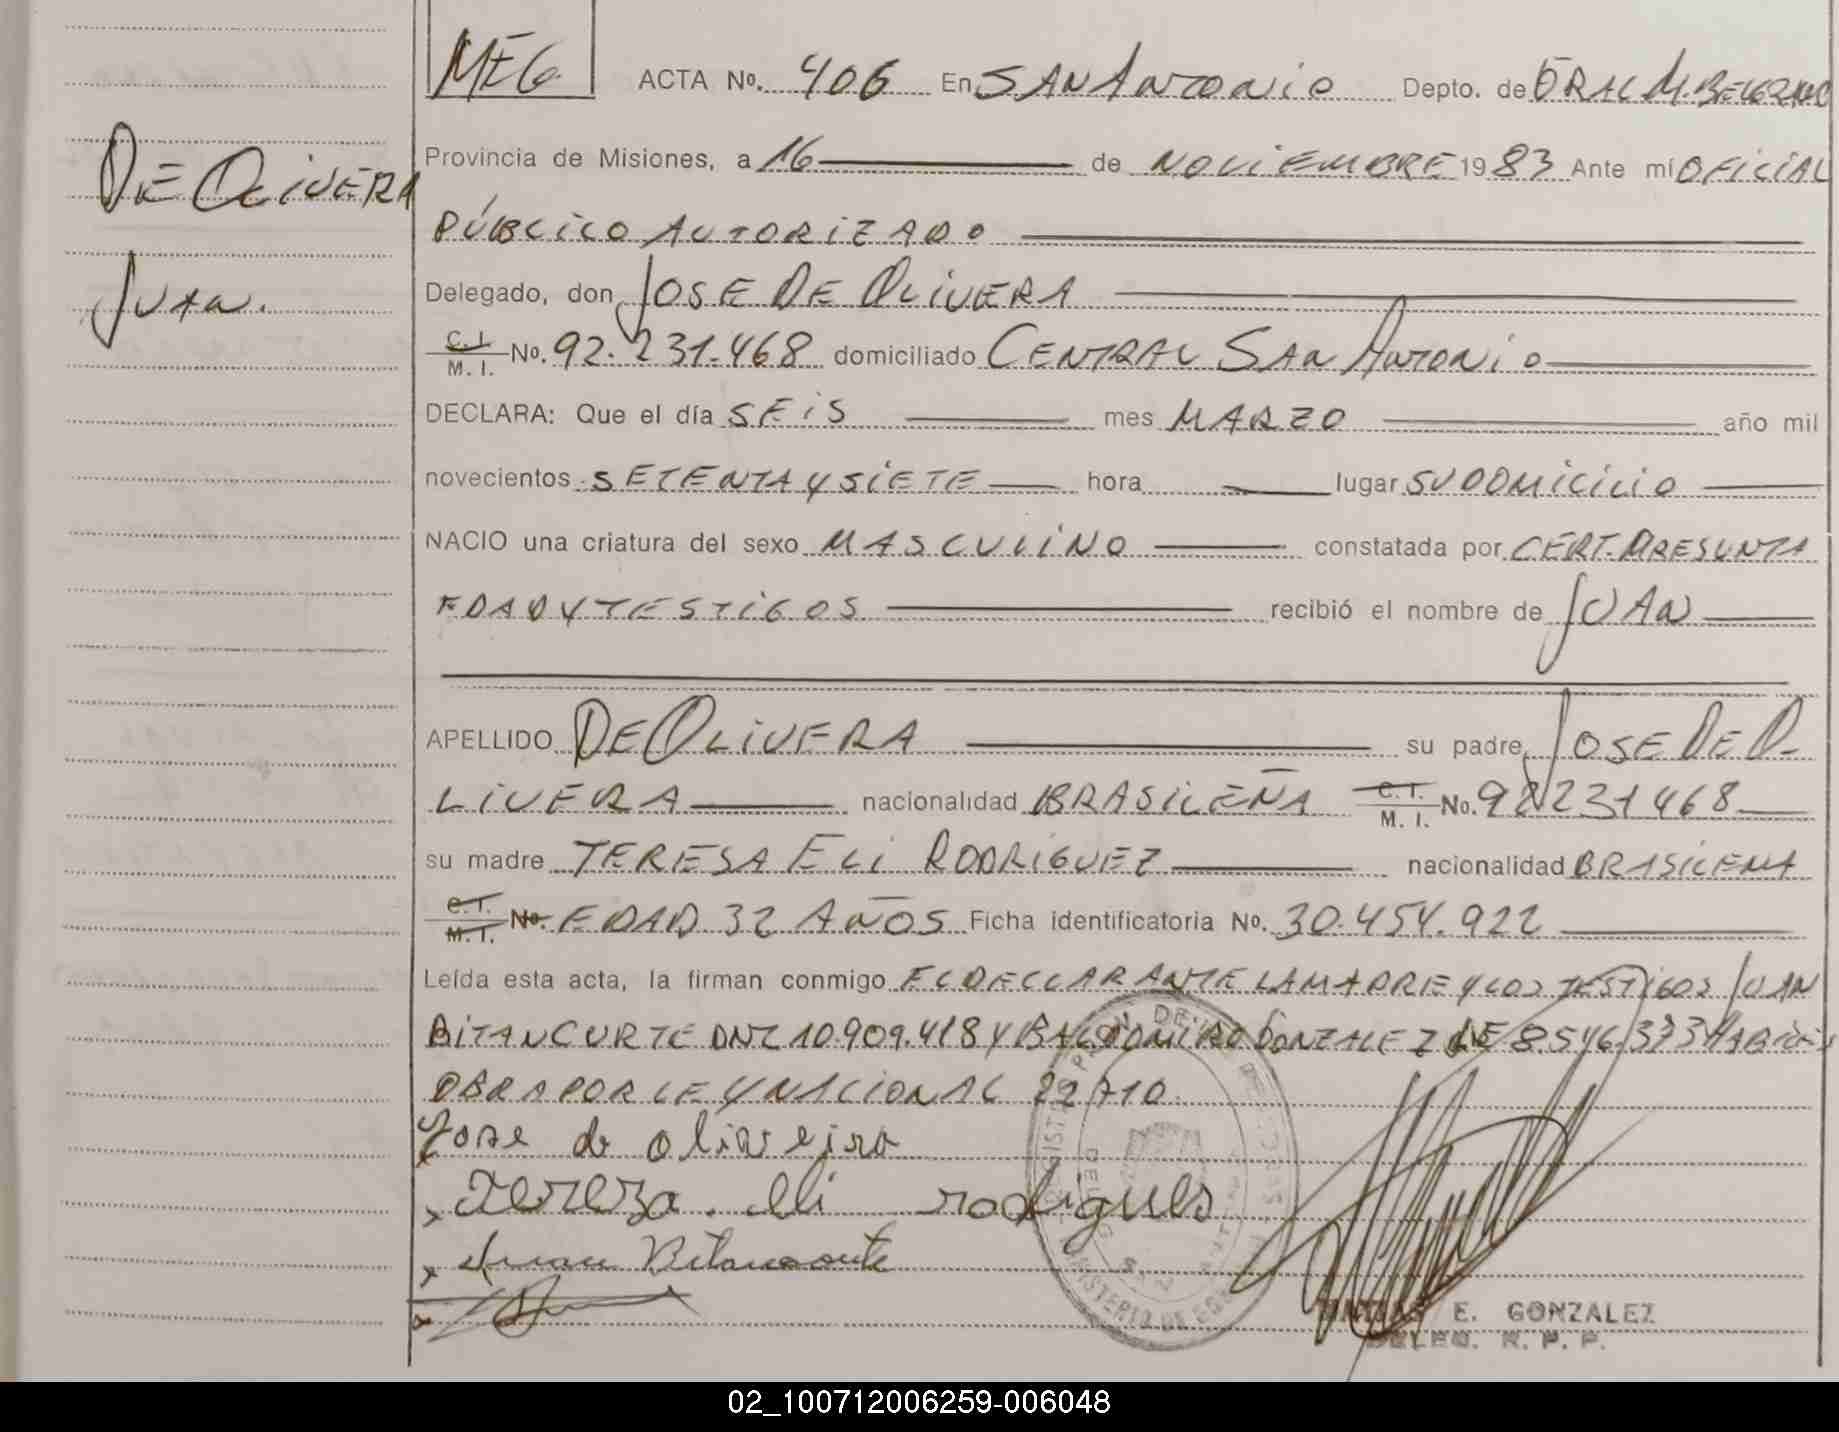 MEG
ACTA No. 406 En SAN ANTONIO Depto. de GRAL M. BELGRANO
DE OLIVERA
Provincia de Misiones, a 16 de NOVIEMBRE 1983 Ante mí OFICIAL
PÚBLICO AUTORIZADO
Juan.
Delegado, don JOSE DE OLIVERA
C.I. M. I. No. 92.231.468 domiciliado CENTRAL SAN ANTONIO
DECLARA: Que el día SEIS mes MARZO año mil
novecientos SETENTA Y SIETE hora lugar SU DOMICILIO
NACIO una criatura del sexo MASCULINO constatada por CERT. PRESUNTA
EDAD Y TESTIGOS recibió el nombre de JUAN
APELLIDO DE OLIVERA su padre JOSE DE O-
LIVERA nacionalidad BRASILEÑA C.I. M. I. No. 92231468
su madre TERESA ELI RODRIGUEZ nacionalidad BRASILEÑA
C.I. M.I. No. EDAD 32 AÑOS Ficha identificatoria No. 30.454.922
Leída esta acta, la firman conmigo EL DECLARANTE LA MADRE Y LOS TESTIGOS JUAN
BITANCURTE DNI 10.909.418 Y BALDOMIRO GONZALEZ LE 8.546.333
OBRA POR LEY NACIONAL 22710.
Jose de oliveira
x Tereza. Eli rodrigues
x Juan Bitancourte
E. GONZALEZ
DELEG. R. P. P.
02_100712006259-006048